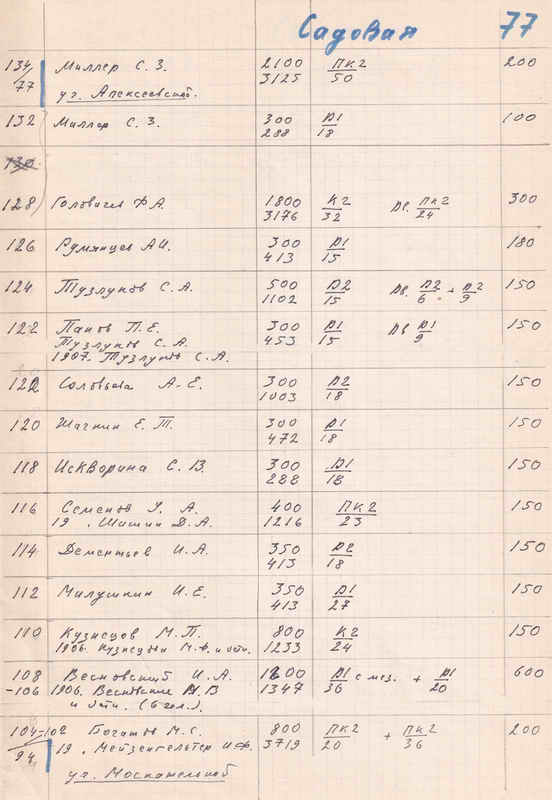 Садовая 77
134/77 Миллер С. З. 2100 ПК2/50 200
3125
уг. Алексеевской.
132 Миллер С. З. 300 Д1/18 100
288
130
128 Головачев Ф А. 1800 К2/32 Дв. ПК2/24 300
3176
126 Румянцев А И. 300 Д1/15 180
413
124 Тузлуков С. А. 500 Д2/15 Дв. Д2/6 + Д2/9 150
1102
122 Панов П. Е. 300 Д1/15 Дв Д1/9 150
Тузлуков С. А. 453
1907. Тузлуков С. А.
122 Соловьева А. Е. 300 Д2/18 150
1003
120 Е. Т. 300 Д1/18 150
472
118 Искворина С. В. 300 Д1/18 150
288
116 Семенов А. 400 ПК2/23 150
19 . Шашин Д. А. 1216
114 Дементьев И. А. 350 Д2/18 150
413
112 Малушкин И. Е. 350 Д1/27 150
413
110 Кузнецов М. П. 800 К2/24 150
1906. Кузнецовы М. Ф. и 1233
108 Весновский И. А. 1200 Д1/36 с мез. + Д1/20 600
-106 1906. Весновские В 1347
и (6 чел.).
104-102 Богатов М. С. 800 ПК2/20 + ПК2/36 200
94 19 . Мейзенгельтер И. Ф. 3719
уг. Москательной